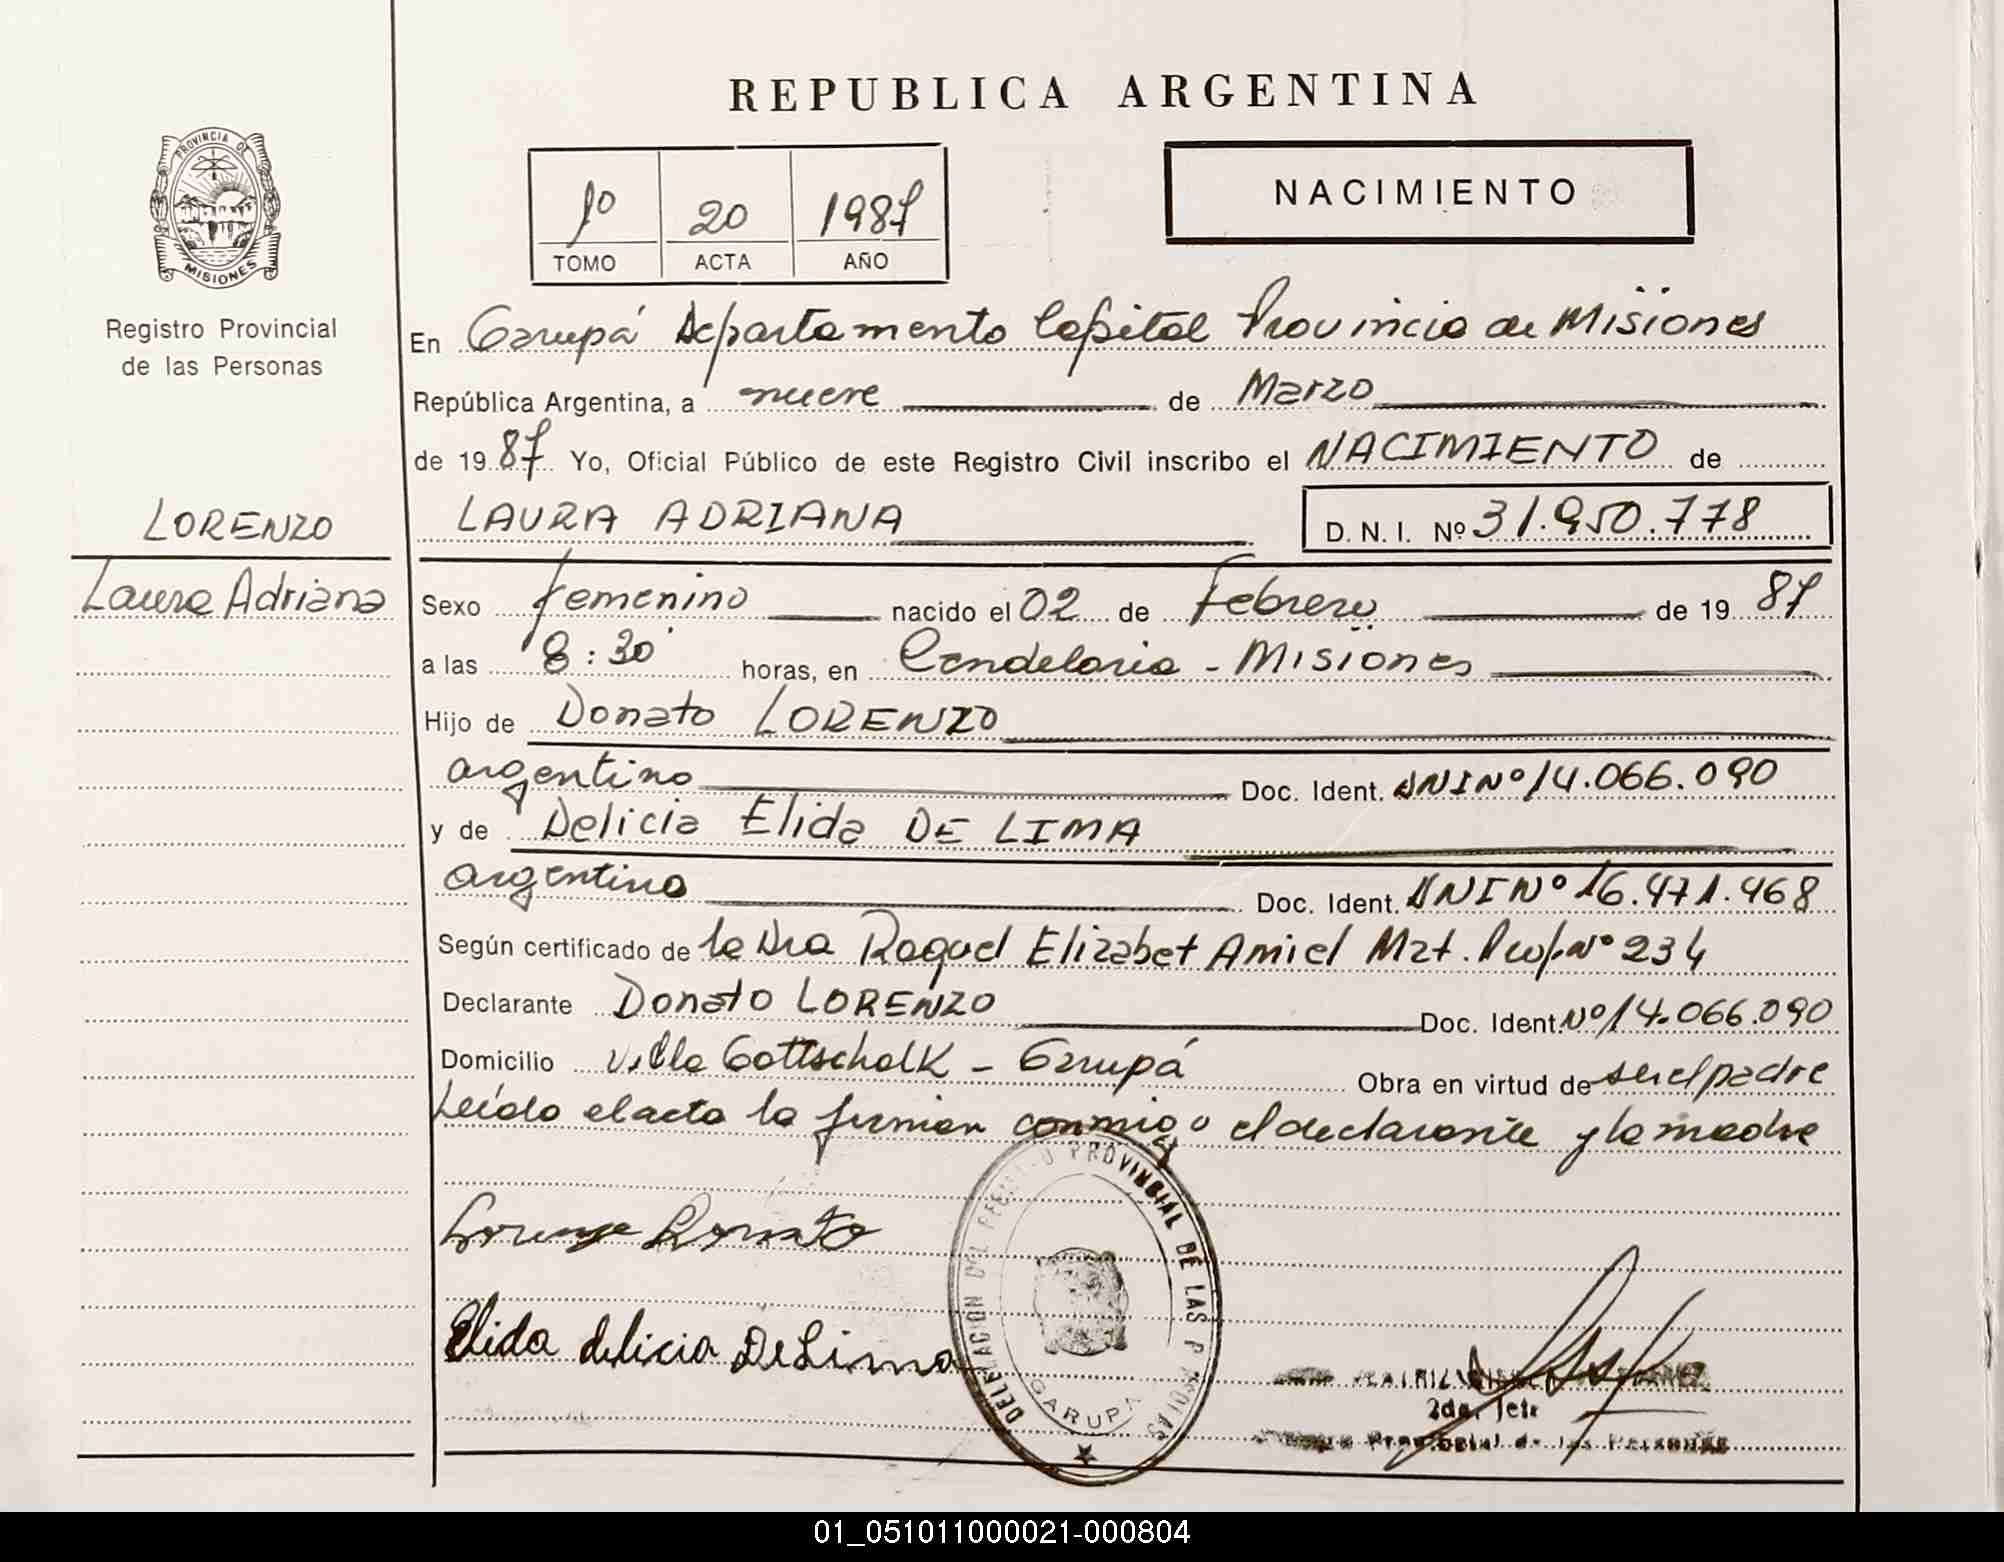 REPUBLICA ARGENTINA
PROVINCIA DE
MISIONES
Registro Provincial
de las Personas
1º 20 1987
TOMO ACTA AÑO
NACIMIENTO
En Garupá Departamento Capital Provincia de Misiones
República Argentina, a nueve de Marzo
de 1987 Yo, Oficial Público de este Registro Civil inscribo el NACIMIENTO de
LORENZO
LAURA ADRIANA D. N. I. Nº 31.950.778
Laura Adriana
Sexo femenino nacido el 02 de Febrero de 1987
a las 8:30 horas, en Candelaria - Misiones
Hijo de Donato LORENZO
argentino Doc. Ident. DNI Nº 14.066.090
y de Delicia Elida DE LIMA
argentina Doc. Ident. DNI Nº 16.471.468
Según certificado de la Dra Raquel Elizabet Amiel Mat. Prof. Nº 234
Declarante Donato LORENZO Doc. Ident. Nº 14.066.090
Domicilio Villa Gottschalk - Garupá Obra en virtud de ser el padre
Leído el acta la firman conmigo el declarante y la madre
Lorenzo Donato
Elida delicia De Lima
DELEGACION DEL REGISTRO PROVINCIAL DE LAS PERSONAS
GARUPA
2da. Jefe
Provincial de las Personas
01_051011000021-000804